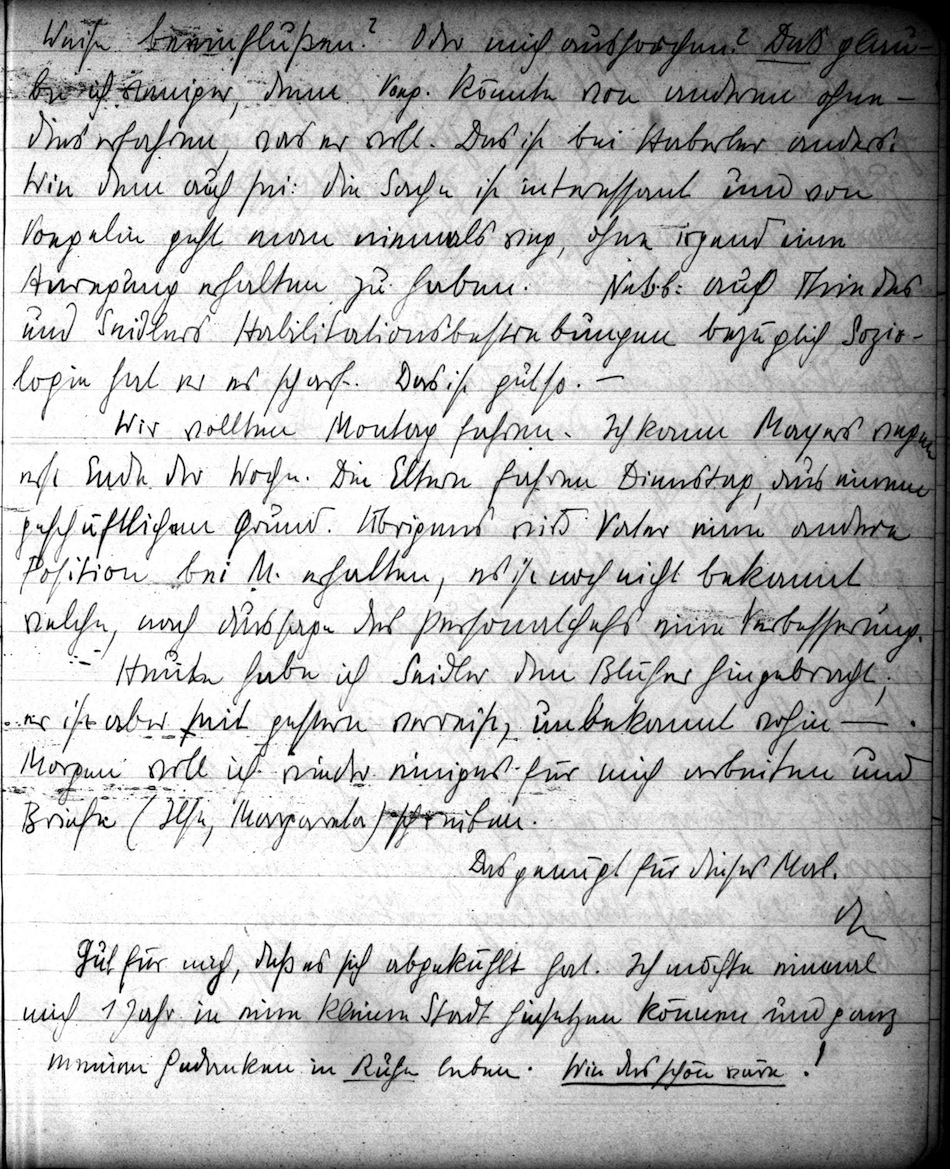 Weise beeinflußen? Oder mich aushorchen? Das glau-
be ich weniger, denn Voeg. könnte von anderen ohne-
dies erfahren, was er will. Das ist bei Haberler anders.
Wie dem auch sei: die Sache ist interessant und von
Voegelin geht man niemals weg, ohne irgend eine
Anregung erhalten zu haben. Nebb: auf Thindes
und Seidlers Habilitationsbestrebungen bezüglich Sozio-
logie hat er es scharf. Das ist gut so. —
Wir wollten Montag fahren. Ich kann Mayers wegen
erst Ende der Woche. Die Eltern fahren Dienstag, aus einem
geschäftlichen Grund. Übrigens wird Vater eine andere
Position bei M. erhalten, es ist noch nicht bekannt
welche, nach Aussage des Personalchefs eine Verbesserung.
Heute habe ich Seidler den Blüher hingebracht,
er ist aber seit gestern verreist, unbekannt wohin — .
Morgen will ich wieder einiges für mich arbeiten und
Briefe (Ilse, Margareta) schreiben.
Das genügt für dieses Mal.
Gut für mich, daß es sich abgekühlt hat. Ich möchte einmal
mich 1 Jahr in eine kleine Stadt hinsetzen können und ganz
meinen Gedanken in Ruhe leben. Wie das schön wäre!